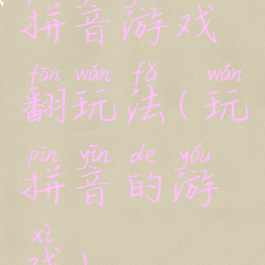 拼音游戏
fān wán fǎ wán
翻玩法(玩
pīn yīn de yóu
拼音的游
xì
戏)